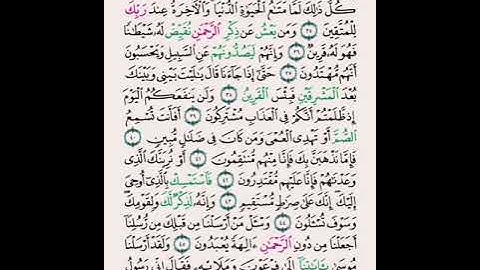 كُلُّ ذَٰلِكَ لَمَّا مَتَٰعُ ٱلْحَيَوٰةِ ٱلدُّنْيَا وَٱلْأَخِرَةُ عِندَ رَبِّكَ
لِلْمُتَّقِينَ ٣٥ وَمَن يَعْشُ عَن ذِكْرِ ٱلرَّحْمَٰنِ نُقَيِّضْ لَهُۥ شَيْطَٰنًا
فَهُوَ لَهُۥ قَرِينٌ ٣٦ وَإِنَّهُمْ لَيَصُدُّونَهُمْ عَنِ ٱلسَّبِيلِ وَيَحْسَبُونَ
أَنَّهُم مُّهْتَدُونَ ٣٧ حَتَّىٰٓ إِذَا جَآءَنَا قَالَ يَٰلَيْتَ بَيْنِى وَبَيْنَكَ
بُعْدَ ٱلْمَشْرِقَيْنِ فَبِئْسَ ٱلْقَرِينُ ٣٨ وَلَن يَنفَعَكُمُ ٱلْيَوْمَ
إِذ ظَّلَمْتُمْ أَنَّكُمْ فِى ٱلْعَذَابِ مُشْتَرِكُونَ ٣٩ أَفَأَنتَ تُسْمِعُ
ٱلصُّمَّ أَوْ تَهْدِى ٱلْعُمْىَ وَمَن كَانَ فِى ضَلَٰلٍ مُّبِينٍ ٤٠
فَإِمَّا نَذْهَبَنَّ بِكَ فَإِنَّا مِنْهُم مُّنتَقِمُونَ ٤١ أَوْ نُرِيَنَّكَ ٱلَّذِى
وَعَدْنَٰهُمْ فَإِنَّا عَلَيْهِم مُّقْتَدِرُونَ ٤٢ فَٱسْتَمْسِكْ بِٱلَّذِىٓ أُوحِىَ
إِلَيْكَ إِنَّكَ عَلَىٰ صِرَٰطٍ مُّسْتَقِيمٍ ٤٣ وَإِنَّهُۥ لَذِكْرٌ لَّكَ وَلِقَوْمِكَ
وَسَوْفَ تُسْـَٔلُونَ ٤٤ وَسْـَٔلْ مَنْ أَرْسَلْنَا مِن قَبْلِكَ مِن رُّسُلِنَآ
أَجَعَلْنَا مِن دُونِ ٱلرَّحْمَٰنِ ءَالِهَةً يُعْبَدُونَ ٤٥ وَلَقَدْ أَرْسَلْنَا
مُوسَىٰ بِـَٔايَٰتِنَآ إِلَىٰ فِرْعَوْنَ وَمَلَإِي۟هِۦ فَقَالَ إِنِّى رَسُولُ